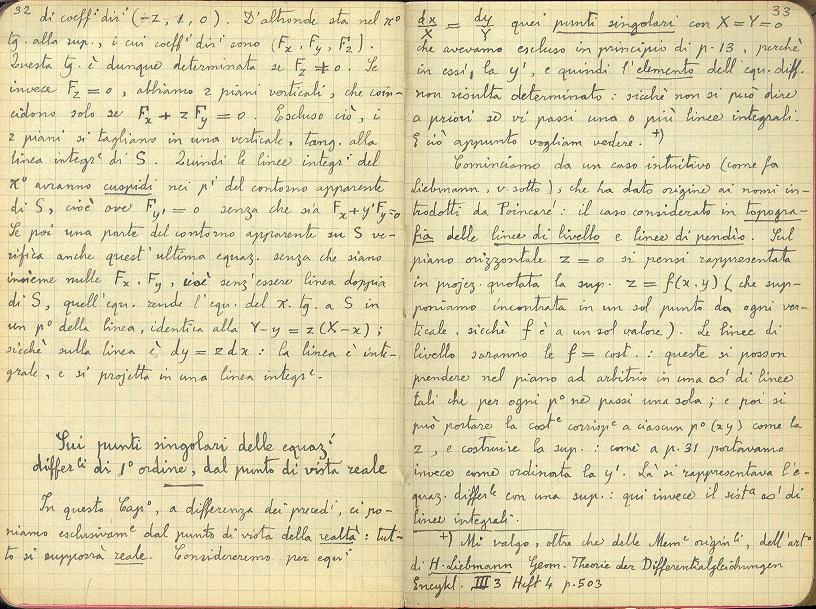 32
di coeff.ⁱ dir.ⁱ (-z, 1, 0). D'altronde sta nel π.º
tg. alla sup., i cui coeff.ⁱ dir.ⁱ sono (Fx, Fy, Fz).
Questa tg. è dunque determinata se Fz ≠ 0. Se
invece Fz = 0, abbiamo 2 piani verticali, che coin-
cidono solo se Fx + zFy = 0. Escluso ciò, i
2 piani si tagliano in una verticale, tang. alla
linea integr.ᵉ di S. Quindi le linee integr.ⁱ del
π.º avranno cuspidi nei p.ⁱ del contorno apparente
di S, cioè ove Fy' = 0 senza che sia Fx + y'Fy = 0
Se poi una parte del contorno apparente su S ve-
rifica anche quest'ultima equaz. senza che siano
insieme nulle Fx, Fy, cioè senz'essere linea doppia
di S, quell'equ. rende l'equ. del π. tg. a S in
un p.º della linea, identica alla Y-y = z(X-x);
sicchè sulla linea è dy = z dx: la linea è inte-
grale, e si projetta in una linea integr.ᵉ.
Sui punti singolari delle equaz.ⁱ
differ.ˡⁱ di 1º ordine, dal punto di vista reale
In questo Cap.º, a differenza dei preced.ⁱ, ci po-
niamo esclusivam.ᵉ dal punto di vista della realtà: tut-
to si supporrà reale. Considereremo per equ.ⁱ
33
dx/X = dy/Y quei punti singolari con X=Y=0
che avevamo escluso in principio di p. 13, perchè
in essi, la y', e quindi l'elemento dell'equ. diff.
non risulta determinato: sicchè non si può dire
a priori se vi passi una o più linee integrali.
E ciò appunto vogliam vedere. +)
Cominciamo da un caso intuitivo (come fa
Liebmann, v. sotto), che ha dato origine ai nomi in-
trodotti da Poincaré: il caso considerato in topogra-
fia delle linee di livello e linee di pendìo. Sul
piano orizzontale z = 0 si pensi rappresentata
in projez. quotata la sup. z = f(x,y) (che sup-
poniamo incontrata in un sol punto da ogni ver-
ticale, sicchè f è a un sol valore). Le linee di
livello saranno le f = cost.: queste si posson
prendere nel piano ad arbitrio in una ∞¹ di linee
tali che per ogni p.º ne passi una sola; e poi si
può portare la cost.ᵉ corrisp.ᵉ a ciascun p.º (xy) come la
z, e costruire la sup.: com'è a p. 31 portavamo
invece come ordinata la y'. Là si rappresentava l'e-
quaz. differ.ˡᵉ con una sup.: qui invece il sist.ᵃ ∞¹ di
linee integrali.
+) Mi valgo, oltre che delle Mem.ᵉ origin.ˡⁱ, dell'art.º
di H. Liebmann Geom. Theorie der Differentialgleichungen
Encykl. III 3 Heft 4 p. 503